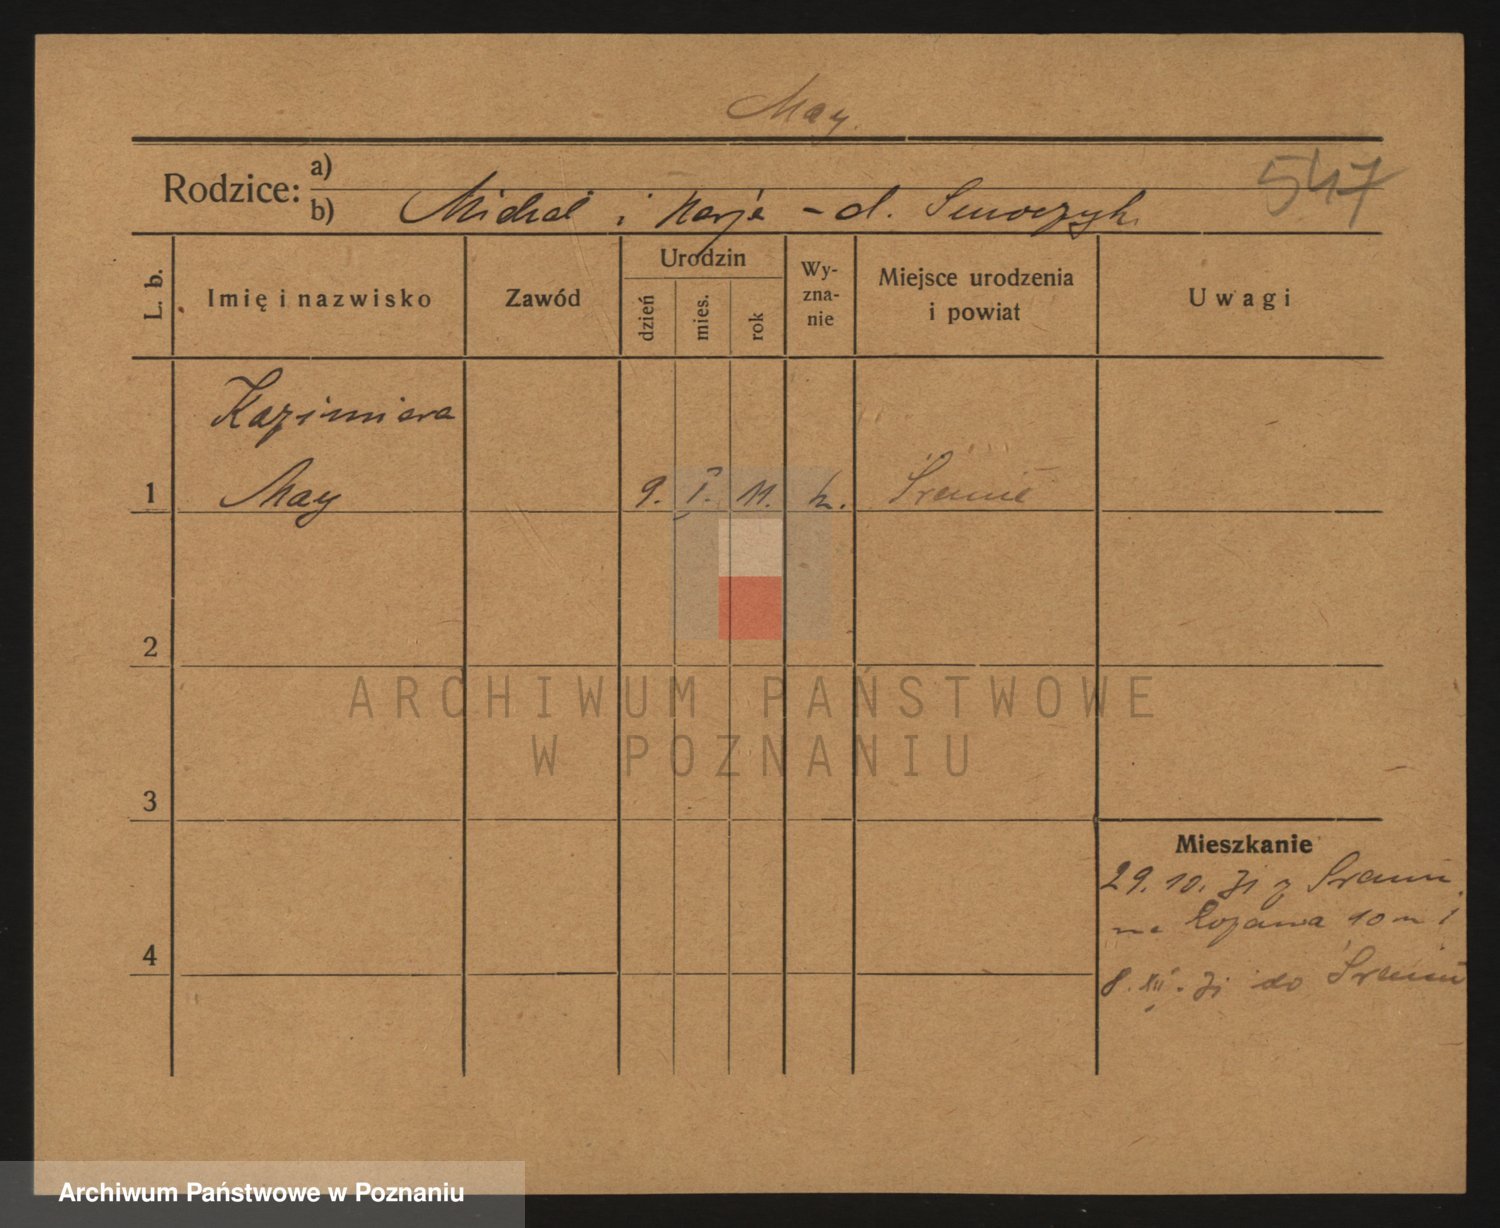 May.
547
Rodzice:
a)
b) Michał i Marja - d.
L. b.
Imię i nazwisko
Zawód
Urodzin
dzień
mies.
rok
Wy-
zna-
nie
Miejsce urodzenia
i powiat
Uwagi
Kazimiera
1 May 9. I. 11. k. Śremie
2
3
4
Mieszkanie
29. 10. 31 z Śremu
na 10 m 1
8. XII. 31 do Śremu
ARCHIWUM PAŃSTWOWE
W POZNANIU
Archiwum Państwowe w Poznaniu